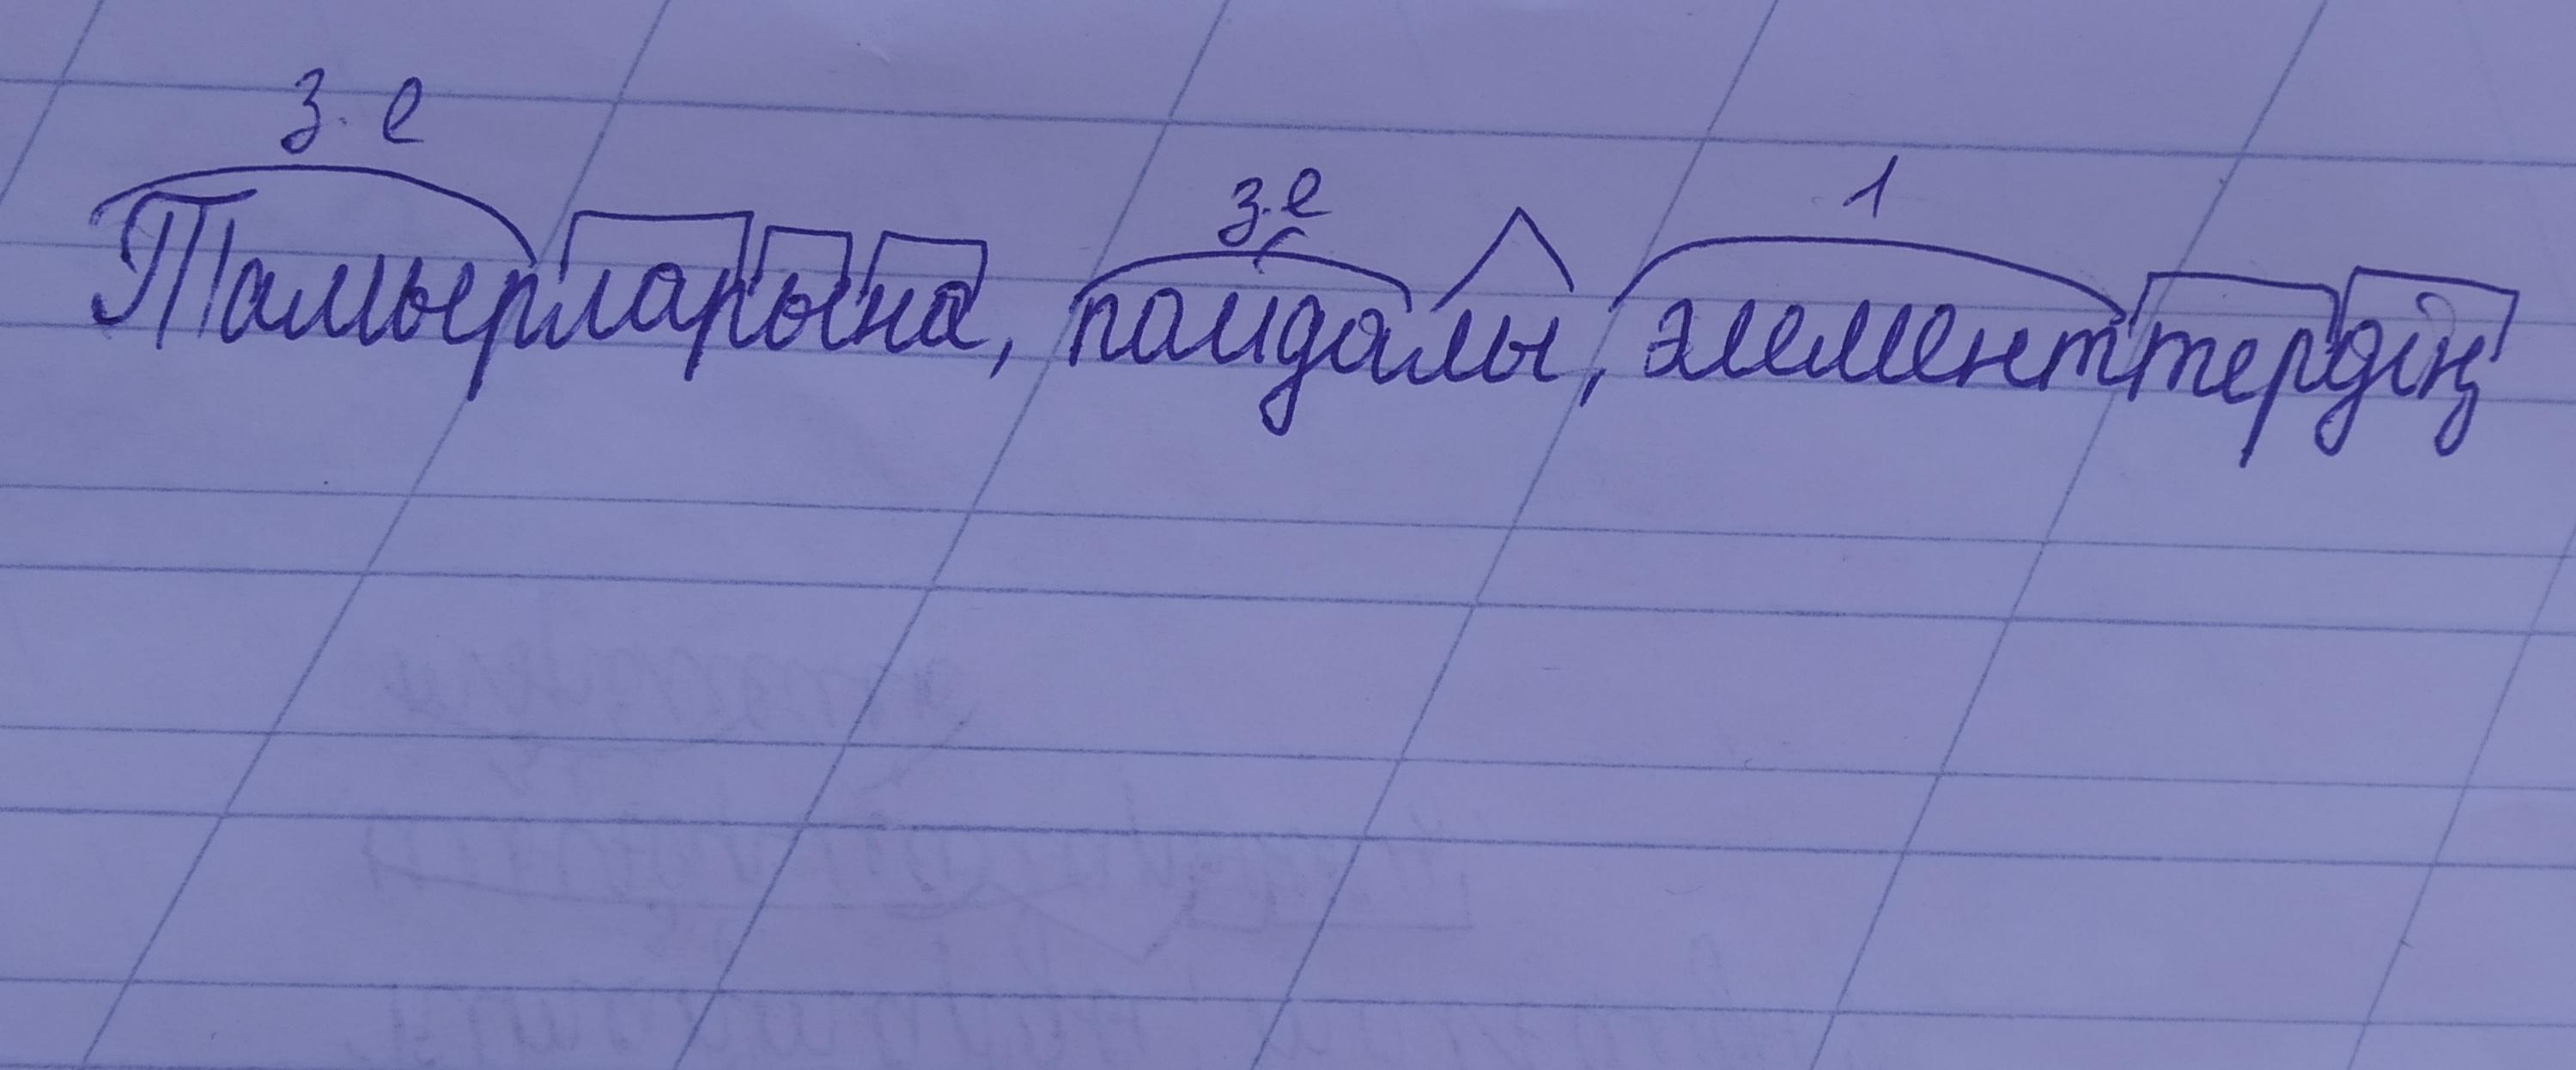 з.е з.е 1
Тамырларына, пайдалы, элементтердің